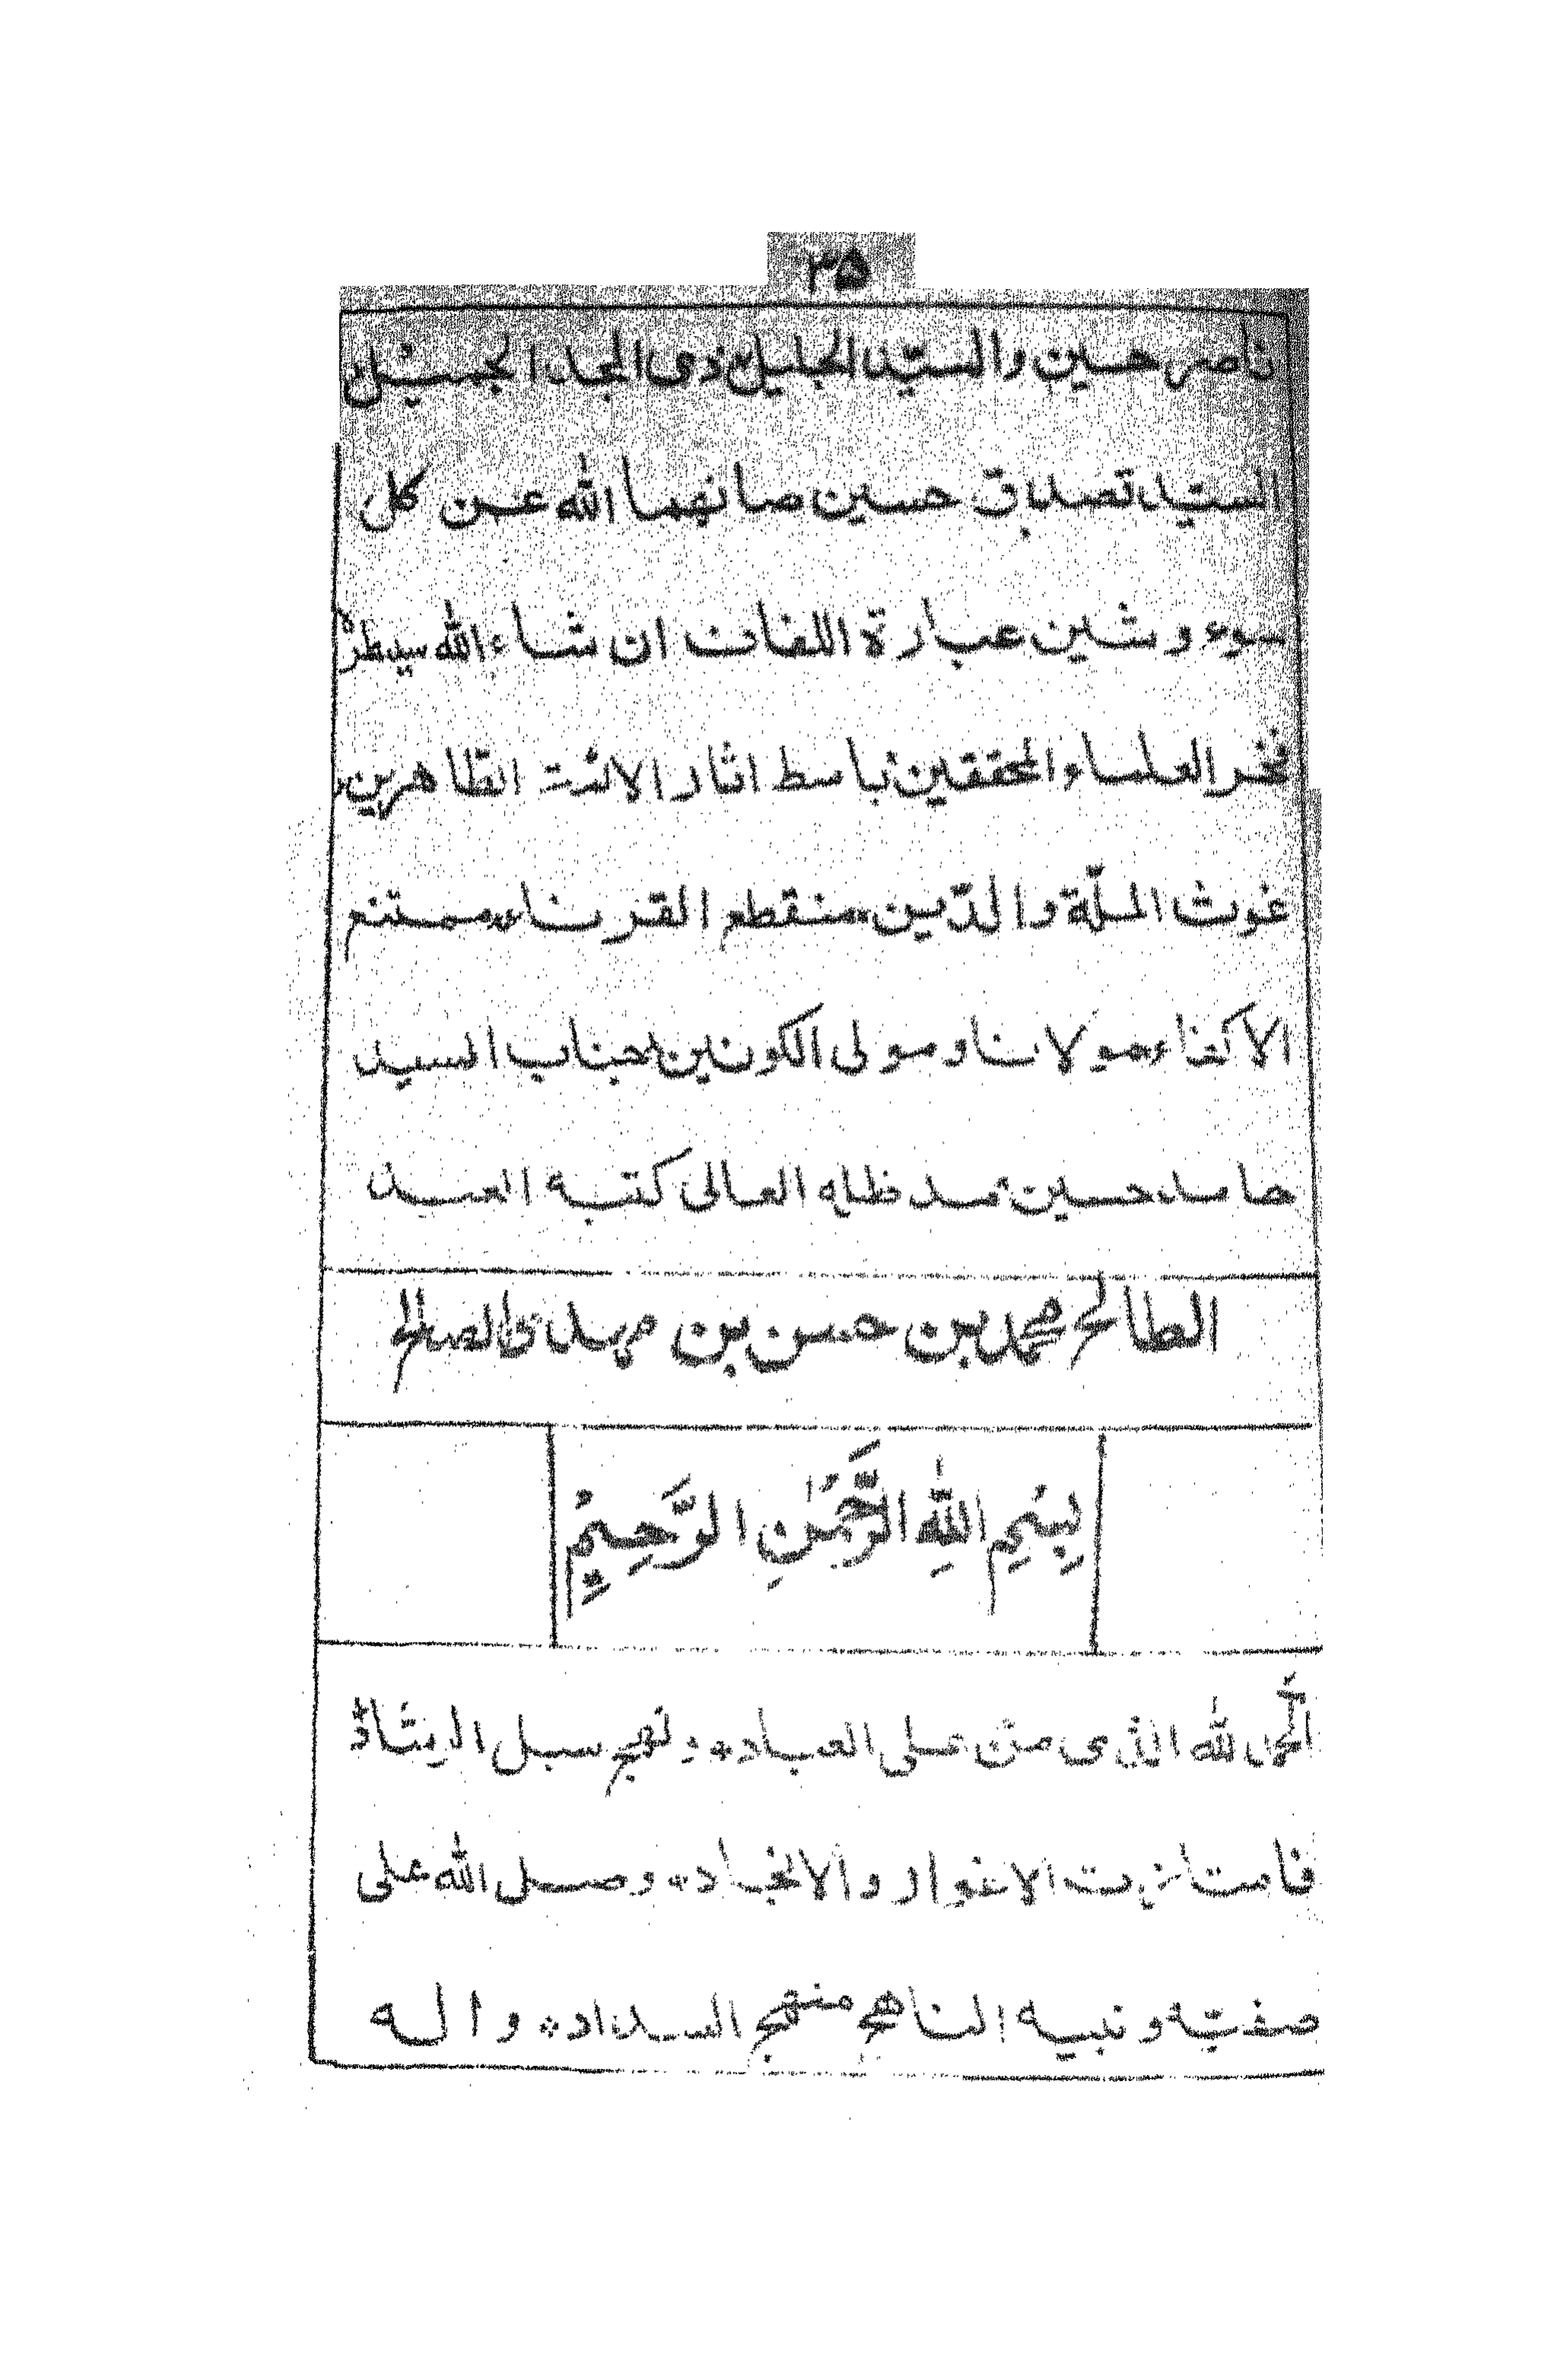 ۳۵
ناصر حسين والسيّد الجليل ذى المجد الجميل
السيّد تصدق حسين صانهما الله عن كل
سوء وشين عبارة اللفافت ان شاء الله سيطرة
فخر العلماء المحققين باسط اثار الائمة الطاهرين
غوث الملّة والدّين منقطع القرناء ممتنع
الاكفاء مولانا ومولى الكونين جناب السيد
حامد حسين مد ظله العالى كتبه العبد
الطالح محمد بن حسن بن مهدى الصالح
بِسْمِ اللهِ الرَّحْمٰنِ الرَّحِيْمِ
الحمد لله الذى منّ على العباد * ونهج سبل الرشاد
فامتازت الاغوار والانجاد * وصل الله على
صفيّه ونبيه الناهج منهج السداد * واله